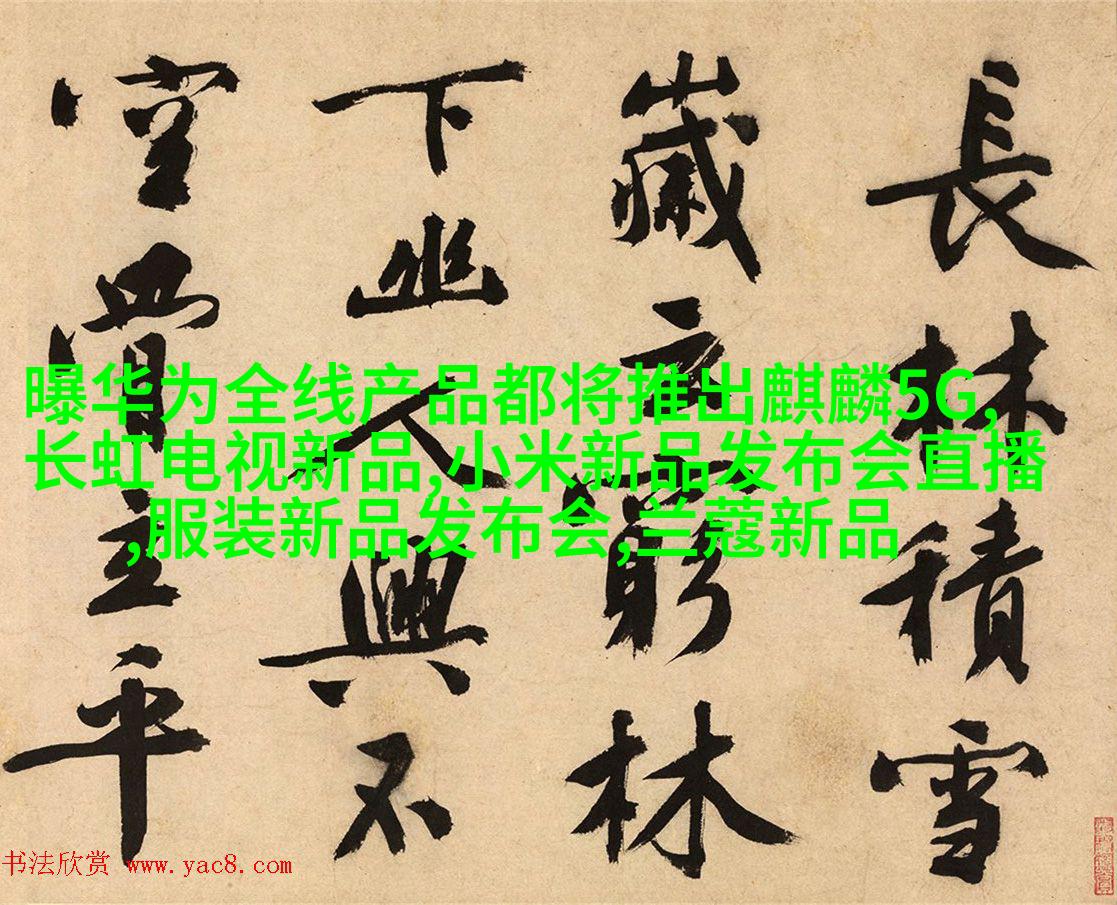 長林積雪
歲云窮林
下幽人興不
空主平
曝华为全线产品都将推出麒麟5G,
长虹电视新品,小米新品发布会直播
,服装新品发布会,兰蔻新品
书法欣赏 www.yac8.com